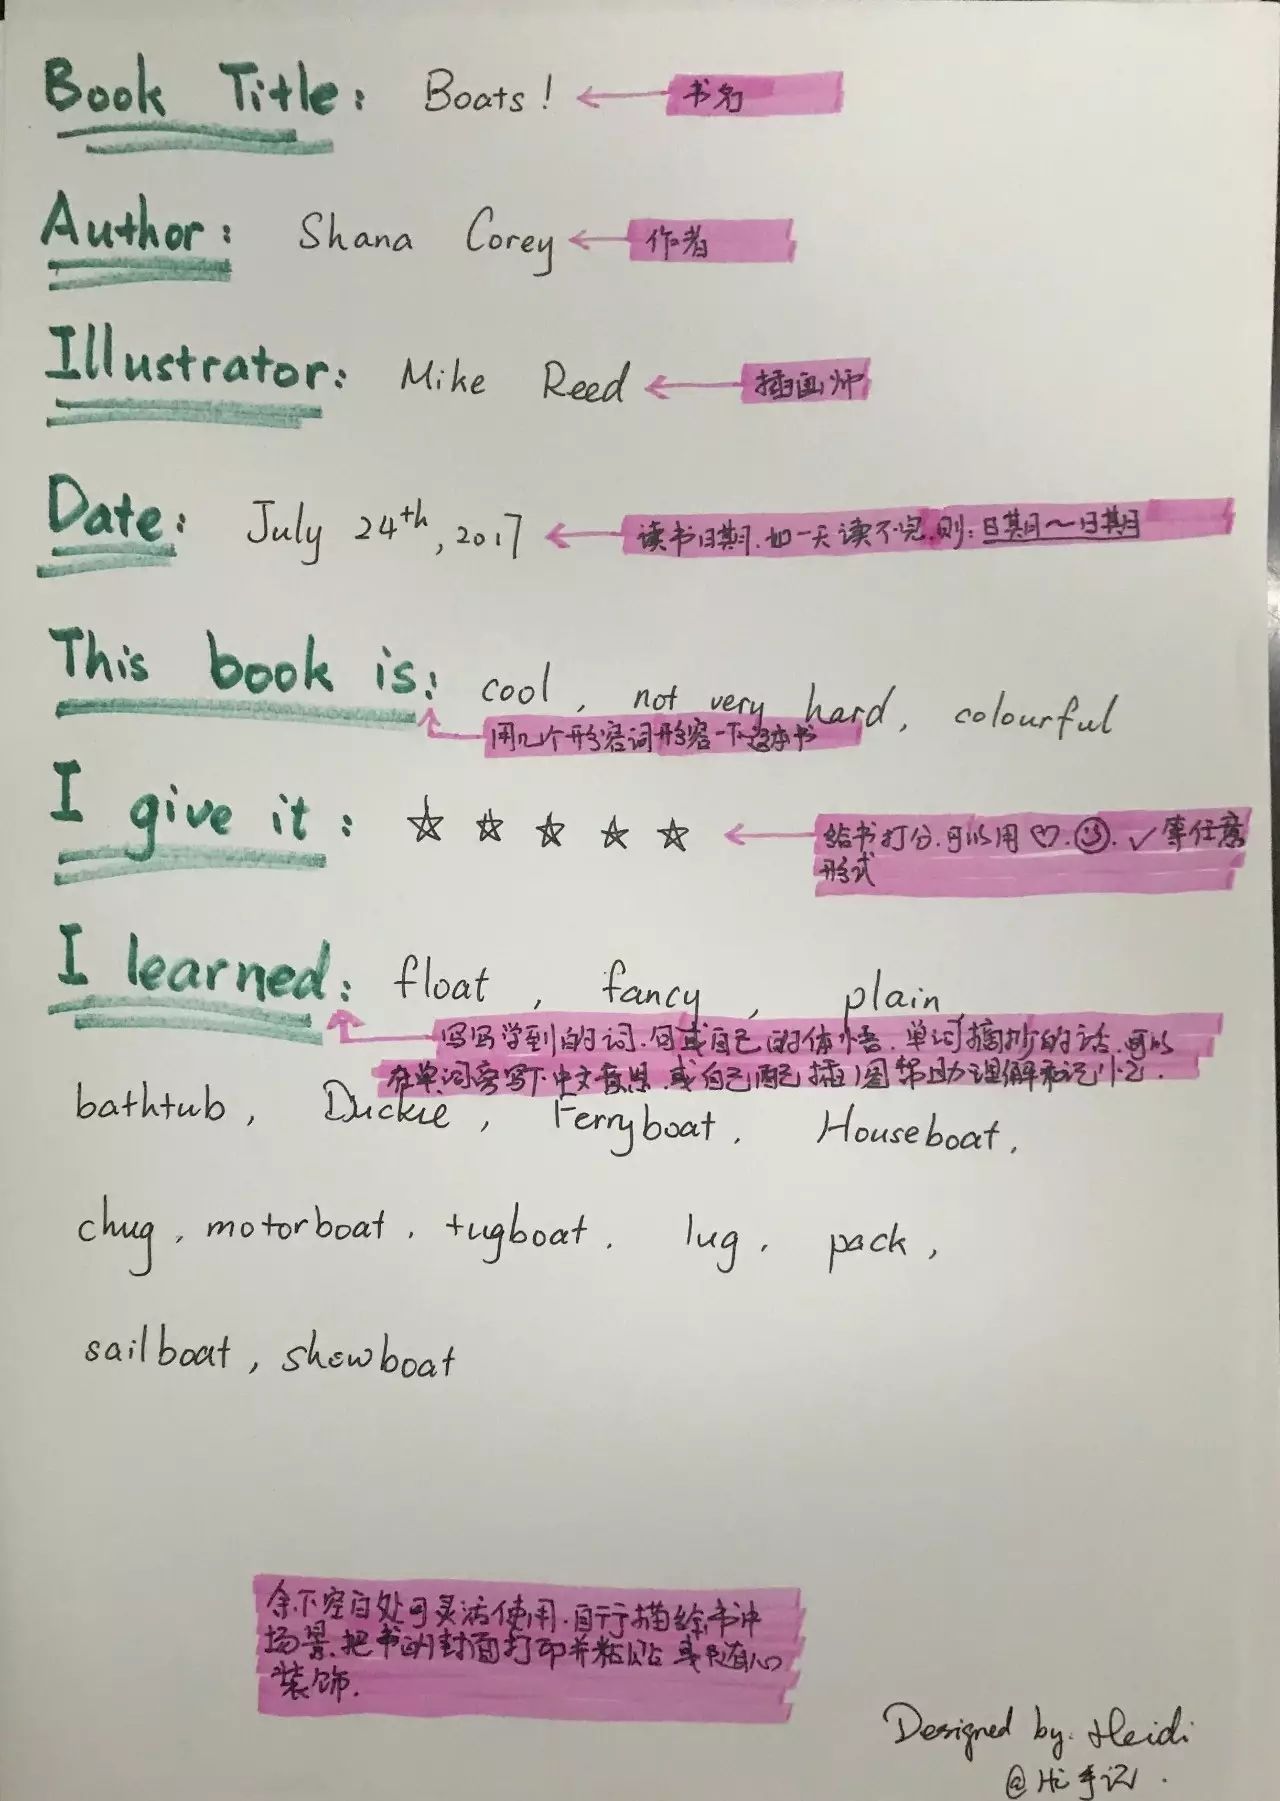 Book Title: Boats! 书名
Author: Shana Corey 作者
Illustrator: Mike Reed 插画师
Date: July 24th, 2017 读书日期.如一天读不完.则:日期～日期
This book is: cool, not very hard, colourful
用几个形容词形容一下这本书
I give it: ☆ ☆ ☆ ☆ ☆ 给书打分.可以用♡.☺.✓等任意
形式
I learned: float, fancy, plain
写写学到的词.句或自己的体悟.单词摘抄的话.可以
在单词旁写下中文意思.或自己配插图帮助理解和记忆.
bathtub, Duckie, Ferryboat. Houseboat.
chug, motorboat. tugboat. lug. pack,
sailboat, showboat
余下空白处可灵活使用.自行描绘书中
场景.把书的封面打印并粘贴或随心
装饰.
Designed by. Heidi
@Hi手记.